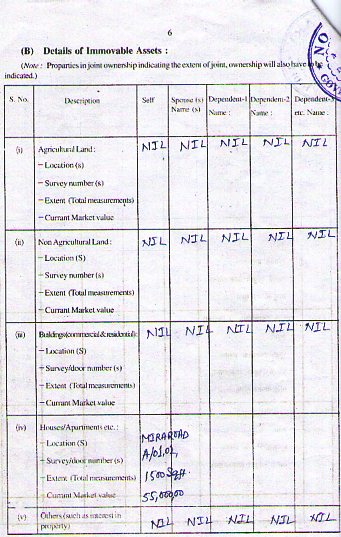 6
(B) Details of Immovable Assets :
(Note : Properties in joint ownership indicating the extent of joint, ownership will also have to be
indicated.)
S. No. Description Self Spouse (s) Dependent-1 Dependent-2 Dependent-3
Name (s) Name : Name : etc. Name :
(i) Agricultural Land : NIL NIL NIL NIL NIL
– Location (s)
– Survey number (s)
– Extent (Total measurements)
– Currant Market value
(ii) Non Agricultural Land : NIL NIL NIL NIL NIL
– Location (S)
– Survey number (s)
– Extent (Total measurements)
– Currant Market value
(iii) Buildings(commercial & residential) : NIL NIL NIL NIL NIL
– Location (S)
– Survey/door number (s)
– Extent (Total measurements)
– Currant Market value
(iv) Houses/Apartments etc. :
– Location (S) MIRAROAD
– Survey/door number (s) A/0102,
– Extent (Total measurements) 1500 Sqft.
– Currant Market value 55,00,000
(v) Others (such as interest in NIL NIL NIL NIL NIL
property)